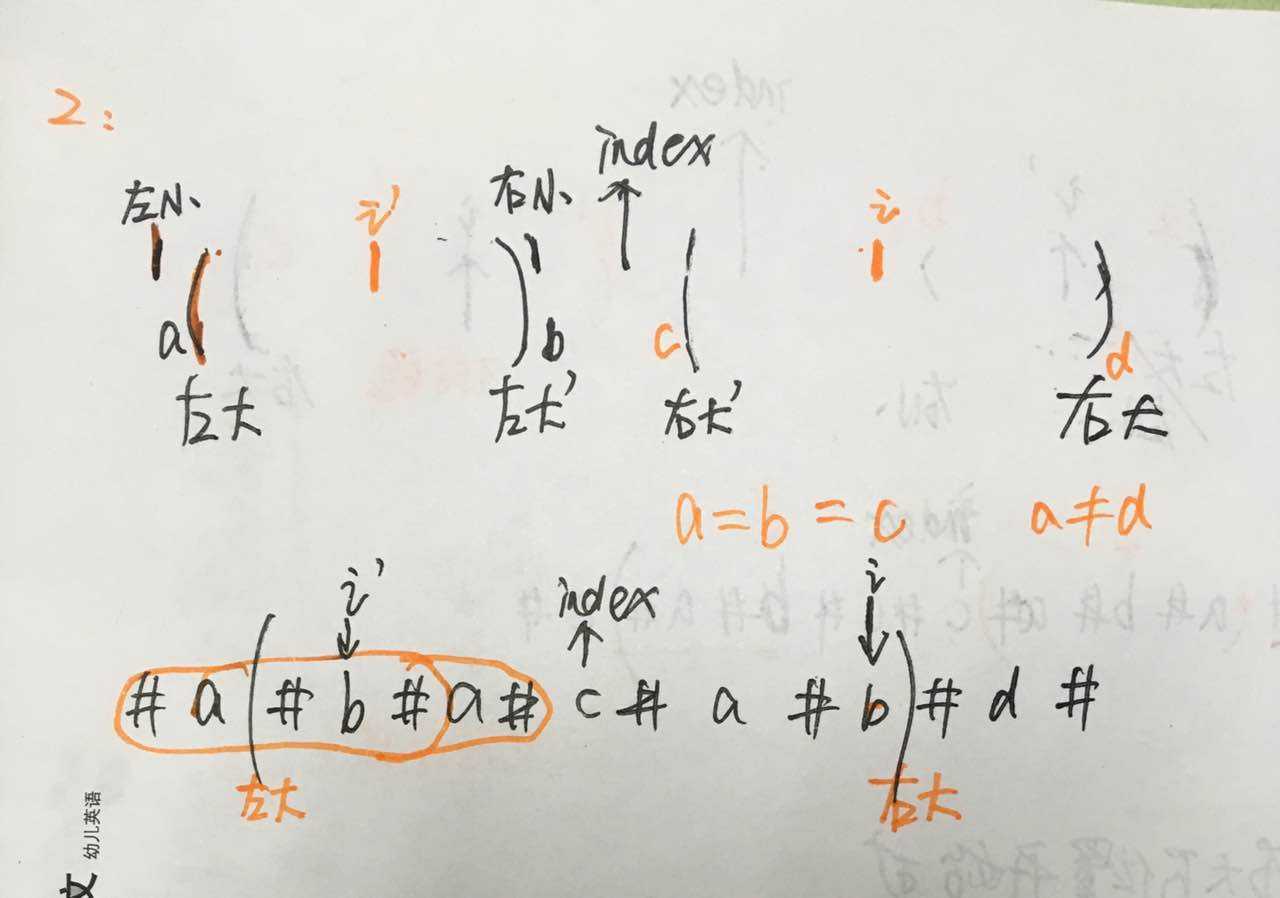 2:
index
左小 i' 右小 i
a b c d
左大 左大' 右大' 右大
a=b=c a≠d
i' index i
# a ( # b # a # c # a # b ) # d #
左大 右大
幼儿英语
文